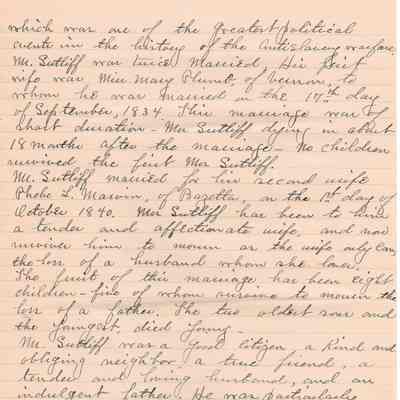 which was one of the greatest political
events in the history of the Antislavery warfare.
Mr. Sutliff was twice married, His first
wife was Miss Mary Plumb, of Vernon, to
whom he was married on the 17th day
of September, 1834. This marriage was of
short duration - Mrs Sutliff, dying in about
18 months after the marriage - No children
survived the first Mrs Sutliff.
Mr. Sutliff married for his second wife
Phebe L. Marvin, of Bazetta, on the 1st day of
October 1840. Mrs Sutliff has been to him
a tender and affectionate wife, and now
survives him to mourn as the wife only can,
the loss of a husband whom she loves.
The fruit of this marriage has been eight
children - five of whom survive to mourn the
loss of a father. The two oldest sons and
the youngest, died young -
Mr. Sutliff was a good citizen, a kind and
obliging neighbor, a true friend, a
tender and loving husband, and an
indulgent father. He was particularly